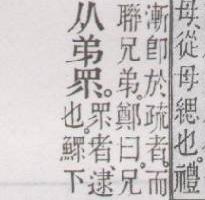 母從母緦也。禮
漸卽於疏者。而
聯兄弟。鄭曰兄
从弟眔。
眔者逮
也。鰥下